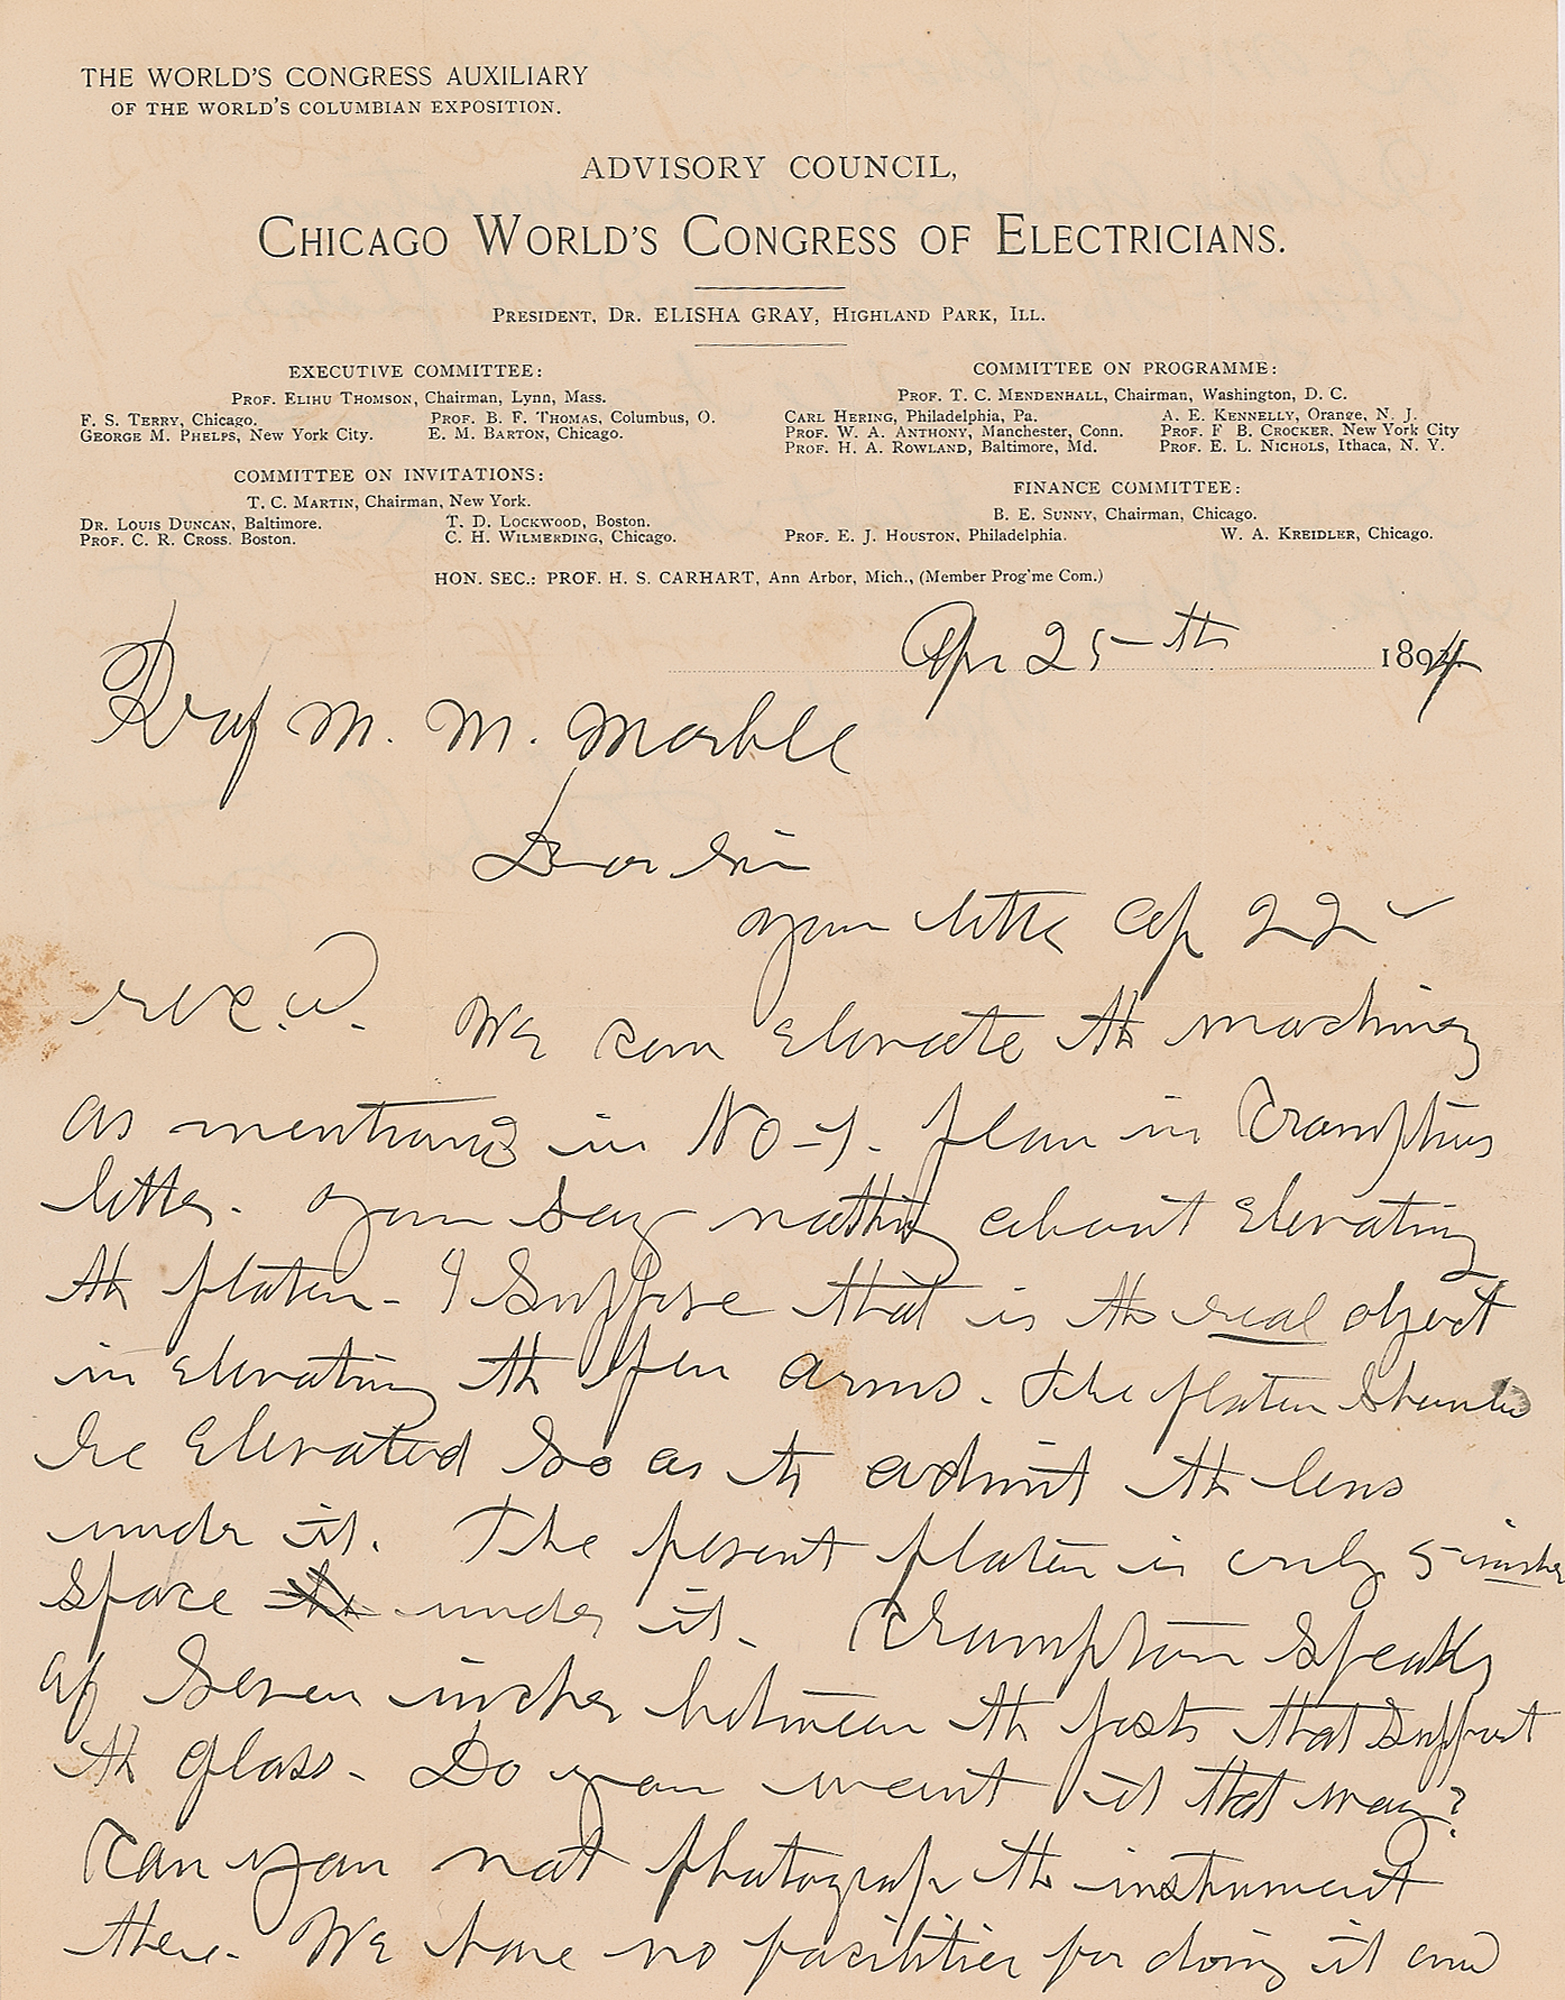 THE WORLD'S CONGRESS AUXILIARY
OF THE WORLD'S COLUMBIAN EXPOSITION.
ADVISORY COUNCIL,
CHICAGO WORLD'S CONGRESS OF ELECTRICIANS.
PRESIDENT, DR. ELISHA GRAY, HIGHLAND PARK, ILL.
EXECUTIVE COMMITTEE:
PROF. ELIHU THOMSON, Chairman, Lynn, Mass.
F. S. TERRY, Chicago. PROF. B. F. THOMAS, Columbus, O.
GEORGE M. PHELPS, New York City. E. M. BARTON, Chicago.
COMMITTEE ON PROGRAMME:
PROF. T. C. MENDENHALL, Chairman, Washington, D. C.
CARL HERING, Philadelphia, Pa. A. E. KENNELLY, Orange, N. J.
PROF. W. A. ANTHONY, Manchester, Conn. PROF. F B. CROCKER, New York City
PROF. H. A. ROWLAND, Baltimore, Md. PROF. E. L. NICHOLS, Ithaca, N. Y.
COMMITTEE ON INVITATIONS:
T. C. MARTIN, Chairman, New York.
DR. LOUIS DUNCAN, Baltimore. T. D. LOCKWOOD, Boston.
PROF. C. R. CROSS. Boston. C. H. WILMERDING, Chicago.
FINANCE COMMITTEE:
B. E. SUNNY, Chairman, Chicago.
PROF. E. J. HOUSTON, Philadelphia. W. A. KREIDLER, Chicago.
HON. SEC.: PROF. H. S. CARHART, Ann Arbor, Mich., (Member Prog'me Com.)
Apr 25th 1894
Prof M. M. Marble
Dear Sir
your letter Ap 22
rec.d. We can elevate the machinery
as mentioned in No-1. plan in Cramptons
letter. you say nothing about elevating
the platen - I suppose that is the real object
in elevating the pen arms. The platen should
be elevated so as to admit the lens
under it. The present platen is only 5 inches
space under it. Crampton speaks
of seven inches between the posts that support
the glass. Do you want it that way?
Can you not photograph the instrument
there. We have no facilities for doing it and